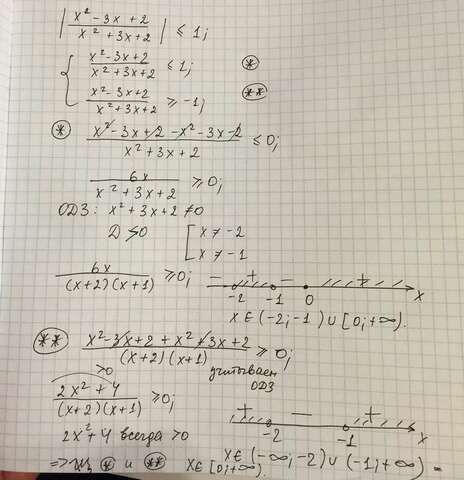 | x² - 3x + 2 / x² + 3x + 2 | ≤ 1;
{ x² - 3x + 2 / x² + 3x + 2 ≤ 1; (*)
x² - 3x + 2 / x² + 3x + 2 ≥ -1; (**)
(*) x² - 3x + 2 - x² - 3x - 2 / x² + 3x + 2 ≤ 0;
6x / x² + 3x + 2 ≥ 0;
ОДЗ: x² + 3x + 2 ≠ 0
D > 0 [ x ≠ -2
x ≠ -1
6x / (x+2)(x+1) ≥ 0; - + - + -2 -1 0 x
x ∈ (-2;-1) ∪ [0;+∞).
(**) x² - 3x + 2 + x² + 3x + 2 / (x+2)(x+1) ≥ 0;
>0 учитываем ОДЗ
2x² + 4 / (x+2)(x+1) ≥ 0;
+ - + -2 -1 x
2x² + 4 всегда > 0
x ∈ (-∞;-2) ∪ (-1;+∞)
=> из (*) и (**) x ∈ [0;+∞).